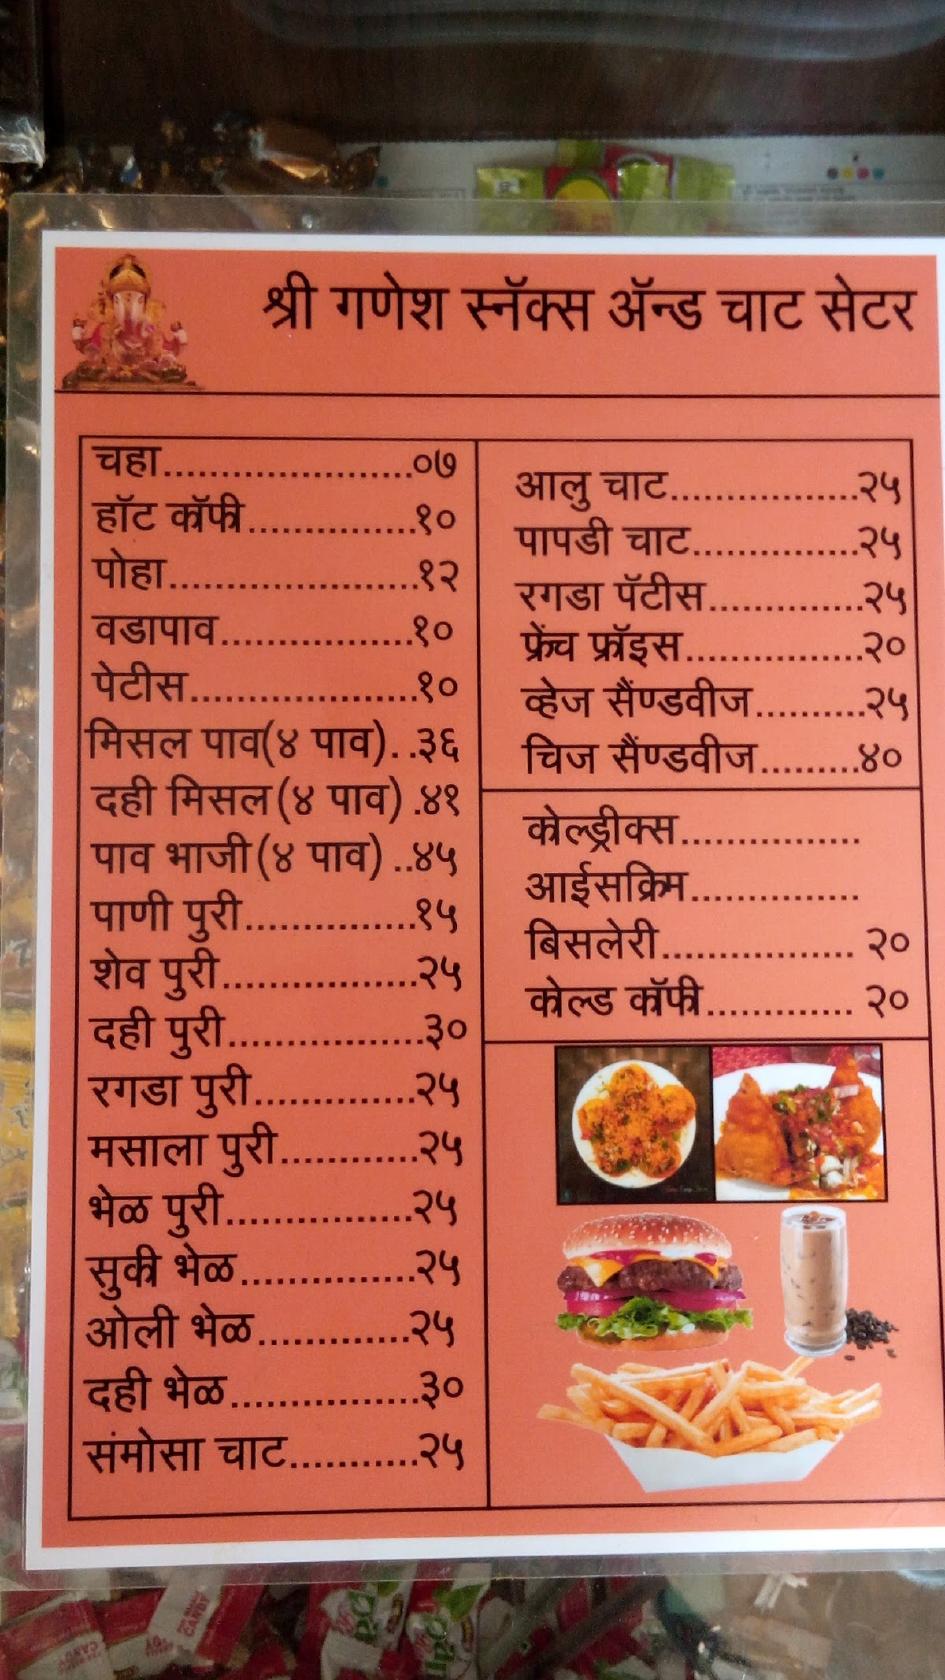 श्री गणेश स्नॅक्स ॲन्ड चाट सेटर
चहा........................०७
हॉट कॉफी...............१०
पोहा.......................१२
वडापाव..................१०
पेटीस.....................१०
मिसल पाव(४ पाव)..३६
दही मिसल(४ पाव) .४१
पाव भाजी(४ पाव) ..४५
पाणी पुरी................१५
शेव पुरी..................२५
दही पुरी..................३०
रगडा पुरी...............२५
मसाला पुरी.............२५
भेळ पुरी.................२५
सुकी भेळ................२५
ओली भेळ..............२५
दही भेळ.................३०
संमोसा चाट............२५
आलु चाट.................२५
पापडी चाट...............२५
रगडा पॅटीस..............२५
फ्रेंच फ्रॉइस................२०
व्हेज सैंण्डवीज..........२५
चिज सैंण्डवीज.........४०
कोल्ड्रीक्स.................
आईसक्रिम................
बिसलेरी.................. २०
कोल्ड कॉफी............. २०